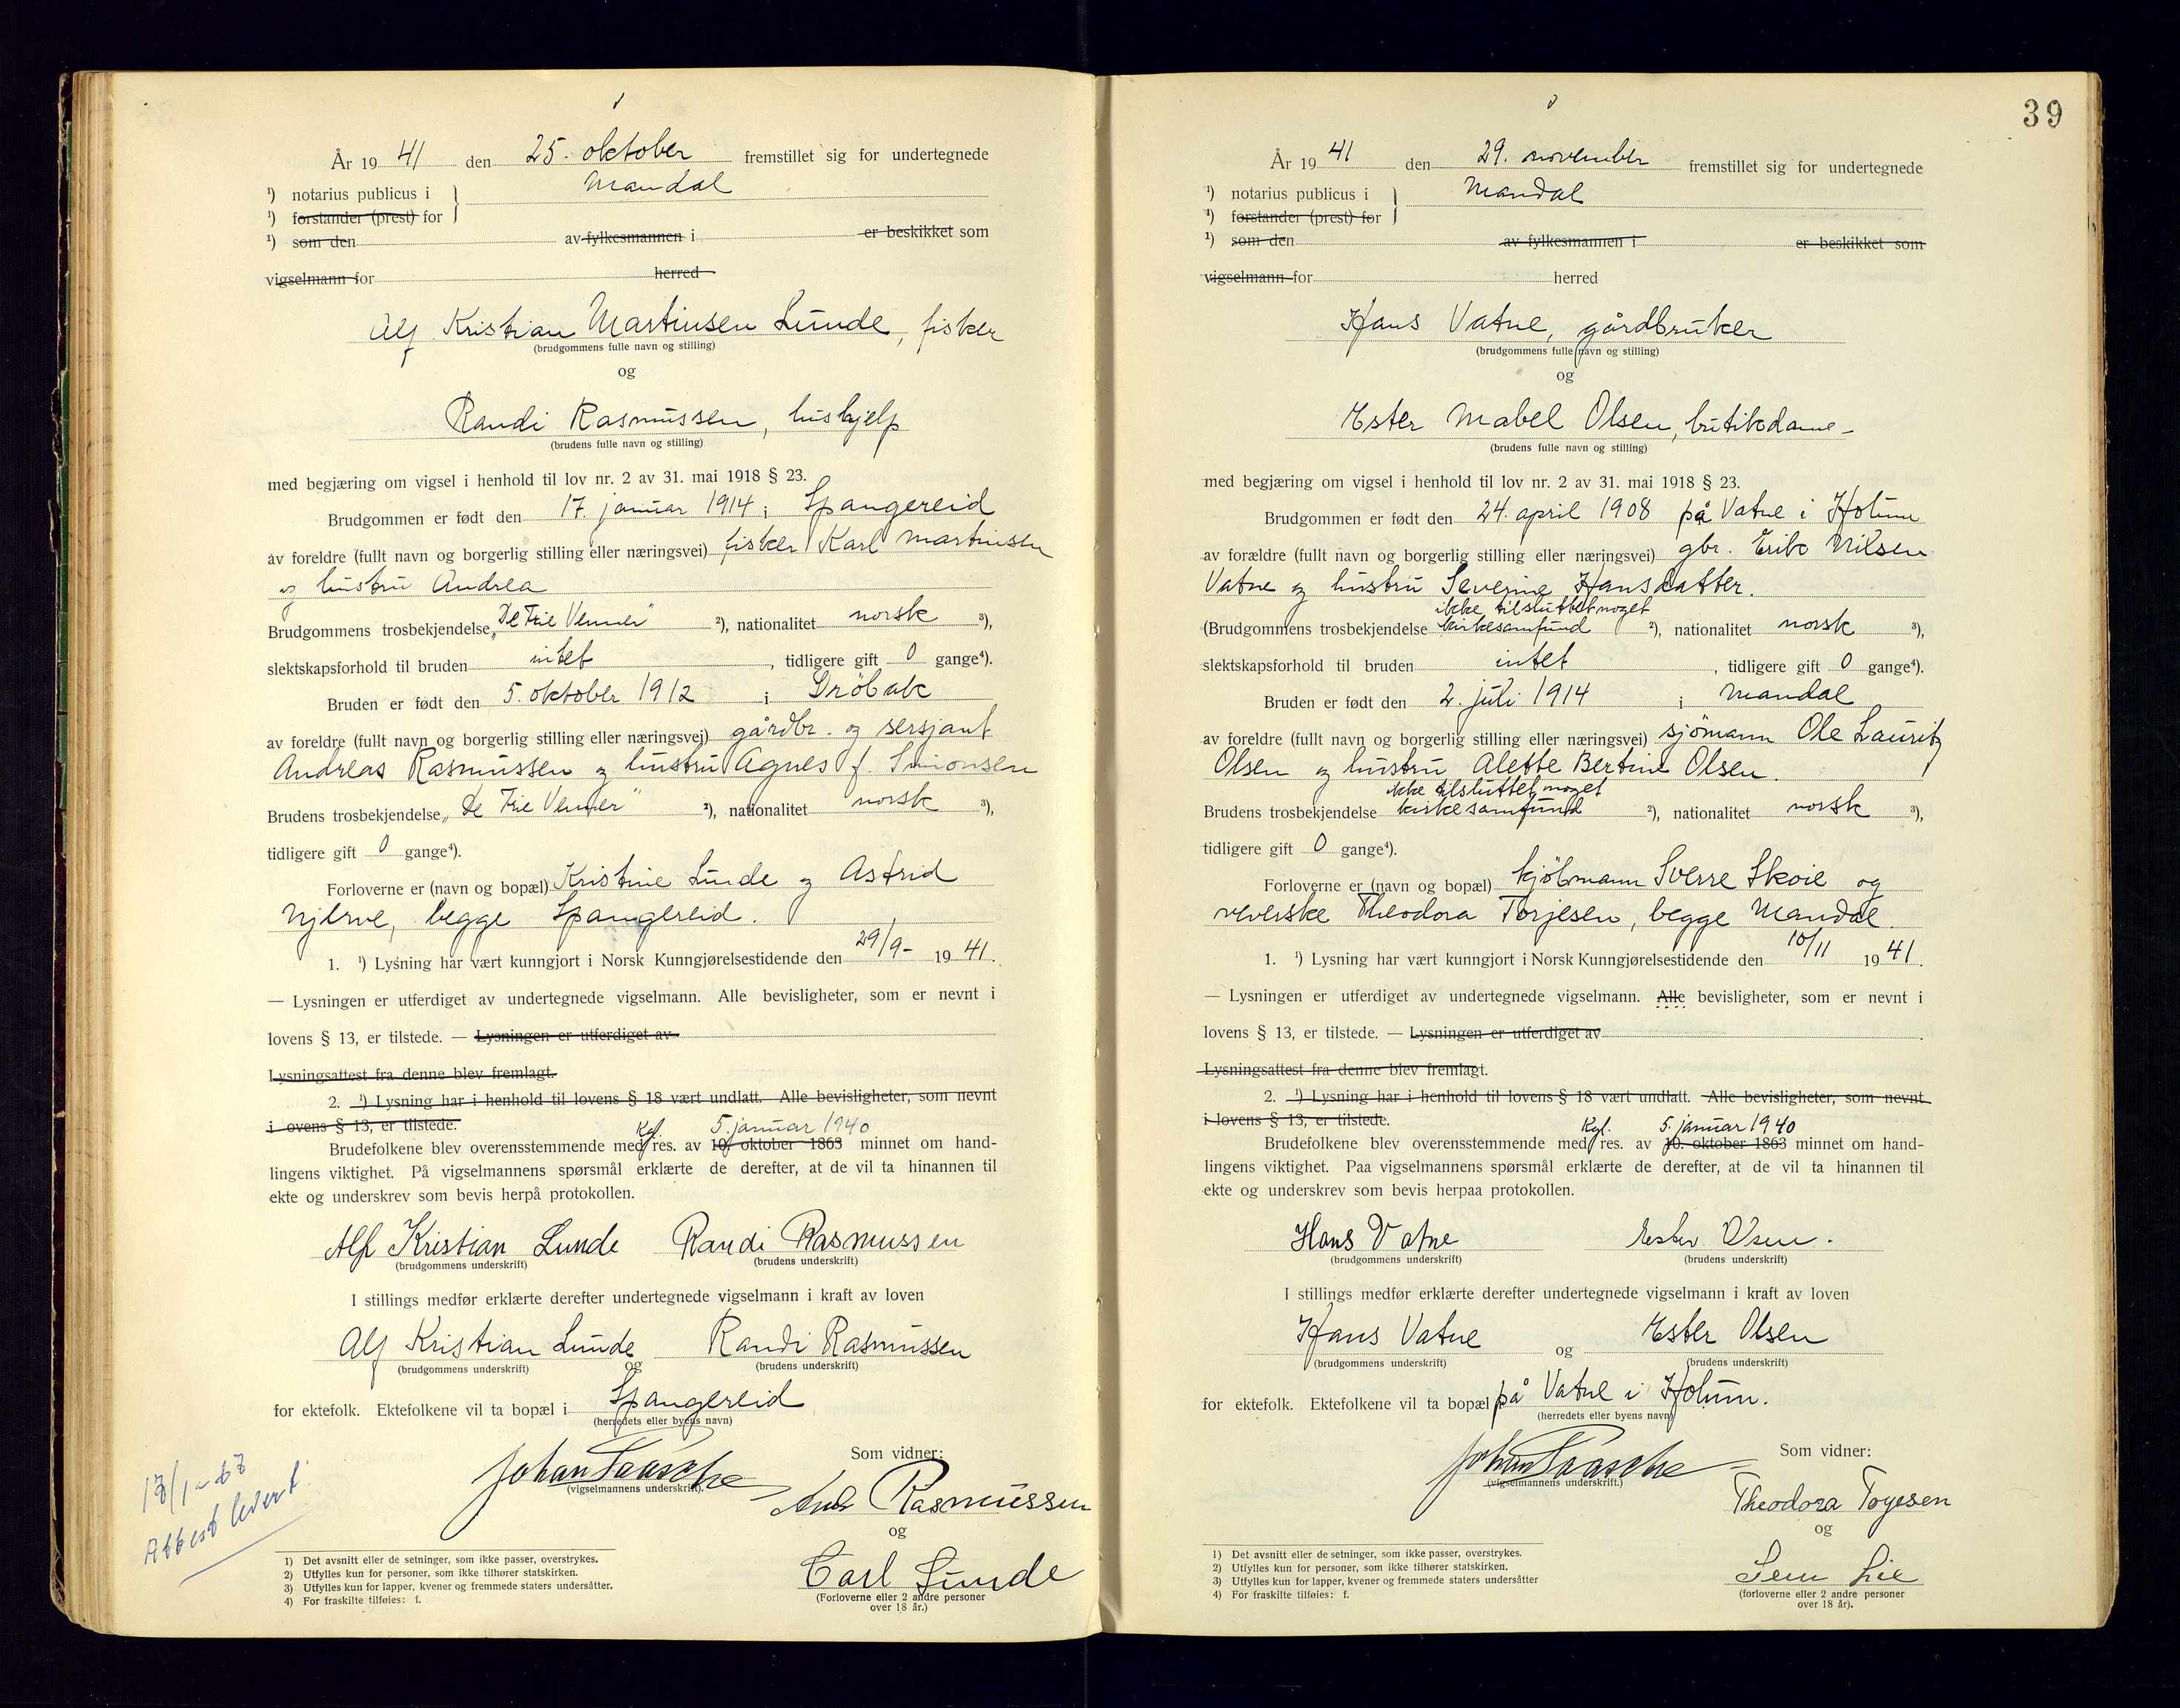 År 1941 den 25. oktober fremstillet sig for undertegnede
¹) notarius publicus i } Mandal
¹) forstander (prest) for
¹) som den av fylkesmannen i er beskikket som
vigselmann for herred
Alf Kristian Martinsen Lunde, fisker
(brudgommens fulle navn og stilling)
og
Randi Rasmussen, hushjelp
(brudens fulle navn og stilling)
med begjæring om vigsel i henhold til lov nr. 2 av 31. mai 1918 § 23.
Brudgommen er født den 17. januar 1914 i Spangereid
av foreldre (fullt navn og borgerlig stilling eller næringsvei) fisker Karl Martinsen
og hustru Andrea
Brudgommens trosbekjendelse „De Frie Venner" ²), nationalitet norsk ³),
slektskapsforhold til bruden intet, tidligere gift 0 gange⁴).
Bruden er født den 5. oktober 1912 i Drøbak
av foreldre (fullt navn og borgerlig stilling eller næringsvei) gårdbr. og sersjant
Andreas Rasmussen og hustru Agnes f. Simonsen
Brudens trosbekjendelse „De Frie Venner" ²), nationalitet norsk ³),
tidligere gift 0 gange⁴).
Forloverne er (navn og bopæl) Kristine Lunde og Astrid
Njerve, begge Spangereid.
1. ¹) Lysning har vært kunngjort i Norsk Kunngjørelsestidende den 29/9- 1941.
— Lysningen er utferdiget av undertegnede vigselmann. Alle bevisligheter, som er nevnt i
lovens § 13, er tilstede. — Lysningen er utferdiget av
Lysningsattest fra denne blev fremlagt.
2. ¹) Lysning har i henhold til lovens § 18 vært undlatt. Alle bevisligheter, som nevnt
i ovens § 13, er tilstede.
Kgl. 5. januar 1940
Brudefolkene blev overensstemmende med res. av 10. oktober 1863 minnet om hand-
lingens viktighet. På vigselmannens spørsmål erklærte de derefter, at de vil ta hinannen til
ekte og underskrev som bevis herpå protokollen.
Alf Kristian Lunde Randi Rasmussen
(brudgommens underskrift) (brudens underskrift)
I stillings medfør erklærte derefter undertegnede vigselmann i kraft av loven
Alf Kristian Lunde og Randi Rasmussen
(brudgommens underskrift) (brudens underskrift)
for ektefolk. Ektefolkene vil ta bopæl i Spangereid
(herredets eller byens navn)
Johan Paasche Som vidner:
(vigselmannens underskrift). And Rasmussen
og
Carl Lunde
(Forloverne eller 2 andre personer
over 18 år.)
18/1-67
Attest levert.
1) Det avsnitt eller de setninger, som ikke passer, overstrykes.
2) Utfylles kun for personer, som ikke tilhører statskirken.
3) Utfylles kun for lapper, kvener og fremmede staters undersåtter.
4) For fraskilte tilføies: f.
39
År 1941 den 29. november fremstillet sig for undertegnede
¹) notarius publicus i } Mandal
¹) forstander (prest) for
¹) som den av fylkesmannen i er beskikket som
vigselmann for herred
Hans Vatne, gårdbruker
(brudgommens fulle navn og stilling)
og
Ester Mabel Olsen, butikdame-
(brudens fulle navn og stilling)
med begjæring om vigsel i henhold til lov nr. 2 av 31. mai 1918 § 23.
Brudgommen er født den 24. april 1908 på Vatne i Holum
av forældre (fullt navn og borgerlig stilling eller næringsvei) gbr. Erik Nilsen
Vatne og hustru Severine Hansdatter.
ikke tilsluttet noget
(Brudgommens trosbekjendelse kirkesamfund ²), nationalitet norsk ³),
slektskapsforhold til bruden intet, tidligere gift 0 gange⁴).
Bruden er født den 2. juli 1914 i Mandal
av foreldre (fullt navn og borgerlig stilling eller næringsvei) sjömann Ole Lauritz
Olsen og hustru Alette Bertine Olsen.
ikke tilsluttet noget
Brudens trosbekjendelse kirkesamfund ²), nationalitet norsk ³),
tidligere gift 0 gange⁴).
Forloverne er (navn og bopæl) kjöbmann Sverre Skoie og
veverske Theodora Torjesen, begge Mandal.
1. ¹) Lysning har vært kunngjort i Norsk Kunngjørelsestidende den 10/11 1941.
— Lysningen er utferdiget av undertegnede vigselmann. Alle bevisligheter, som er nevnt i
lovens § 13, er tilstede. — Lysningen er utferdiget av .
Lysningsattest fra denne blev fremlagt.
2. ¹) Lysning har i henhold til lovens § 18 vært undlatt. Alle bevisligheter, som nevnt
i lovens § 13, er tilstede.
Kgl. 5. januar 1940
Brudefolkene blev overensstemmende med res. av 10. oktober 1863 minnet om hand-
lingens viktighet. Paa vigselmannens spørsmål erklærte de derefter, at de vil ta hinannen til
ekte og underskrev som bevis herpaa protokollen.
Hans Vatne Ester Olsen.
(brudgommens underskrift) (brudens underskrift)
I stillings medfør erklærte derefter undertegnede vigselmann i kraft av loven
Hans Vatne og Ester Olsen
(brudgommens underskrift) (brudens underskrift)
for ektefolk. Ektefolkene vil ta bopæl på Vatne i Holum.
(herredets eller byens navn)
Johan Paasche Som vidner:
(vigselmannens underskrift.) Theodora Torjesen
og
Lie
(forloverne eller 2 andre personer
over 18 år).
1) Det avsnitt eller de setninger, som ikke passer, overstrykes.
2) Utfylles kun for personer, som ikke tilhører statskirken.
3) Utfylles kun for lapper, kvener og fremmede staters undersåtter
4) For fraskilte tilføies: f.